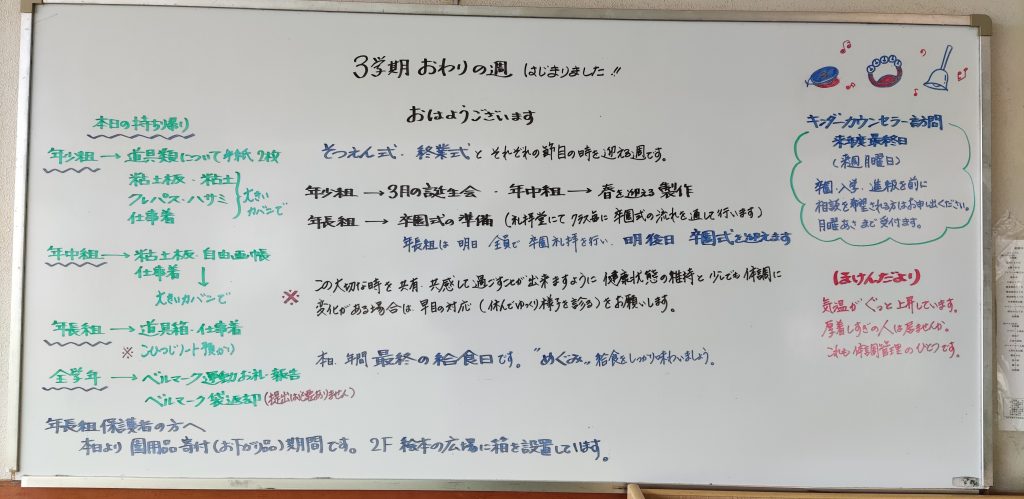 3学期 おわりの週 はじまりました!!
おはようございます
本日の持ち帰り
年少組 → 道具類について手紙 2枚
粘土板・粘土
クレパス・ハサミ
仕事着
大きい
カバンで
年中組 → 粘土板・自由画帳
仕事着
↓
大きいカバンで
年長組 → 道具箱・仕事着
※ こひつじノート預かり
全学年 → ベルマーク運動お礼・報告
ベルマーク袋返却(提出は必要ありません)
年長組 保護者の方へ
本日より 園用品寄付(お下がり品)期間です。 2F 絵本の広場に箱を設置しています。
そつえん式・終業式と それぞれの節目の時を迎える週です。
年少組 → 3月の誕生会 ・ 年中組 → 春を迎える 製作
年長組 → 卒園式の準備 (礼拝堂にて クラス毎に 卒園式の流れを通して行います)
年長組は 明日 全員で 卒園礼拝を行い、明後日 卒園式を迎えます
※ この大切な時を共有・共感して過ごすことが出来ますように 健康状態の維持と少しでも体調に
変化がある場合は 早目の対応 (休んでゆっくり様子を診る) をお願いします。
本日、年間 最終の給食日です。 "めぐみ" 給食をしっかり味わいましょう。
キンダーカウンセラー訪問
来年度最終日
(来週月曜日)
卒園、入学・進級を前に
相談を希望される方はお申し出ください。
月曜あさ まで受付ます。
ほけんだより
気温が ぐっと上昇しています。
厚着しすぎの人は居ませんか。
これも 体調管理のひとつです。